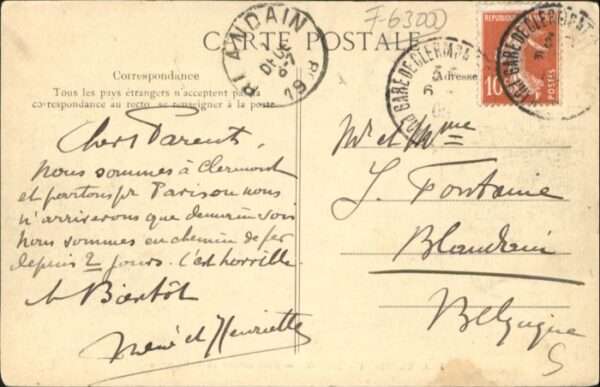 F-63000
CARTE POSTALE
BLANDAIN
Correspondance
Tous les pays étrangers n'acceptent pas la
correspondance au recto, se renseigner à la poste.
Adresse
GARE DE CLERMONT
GARE DE CLERMONT
10
POSTES
Chers Parents
Nous sommes à Clermont
et partons pr Paris où nous
n'arriverons que demain soir
Nous sommes en chemin de fer
depuis 2 jours. C'est horrible.
A Bientôt
René et Henriette
Mr et Mme
J. Fontaine
Blandain
Belgique